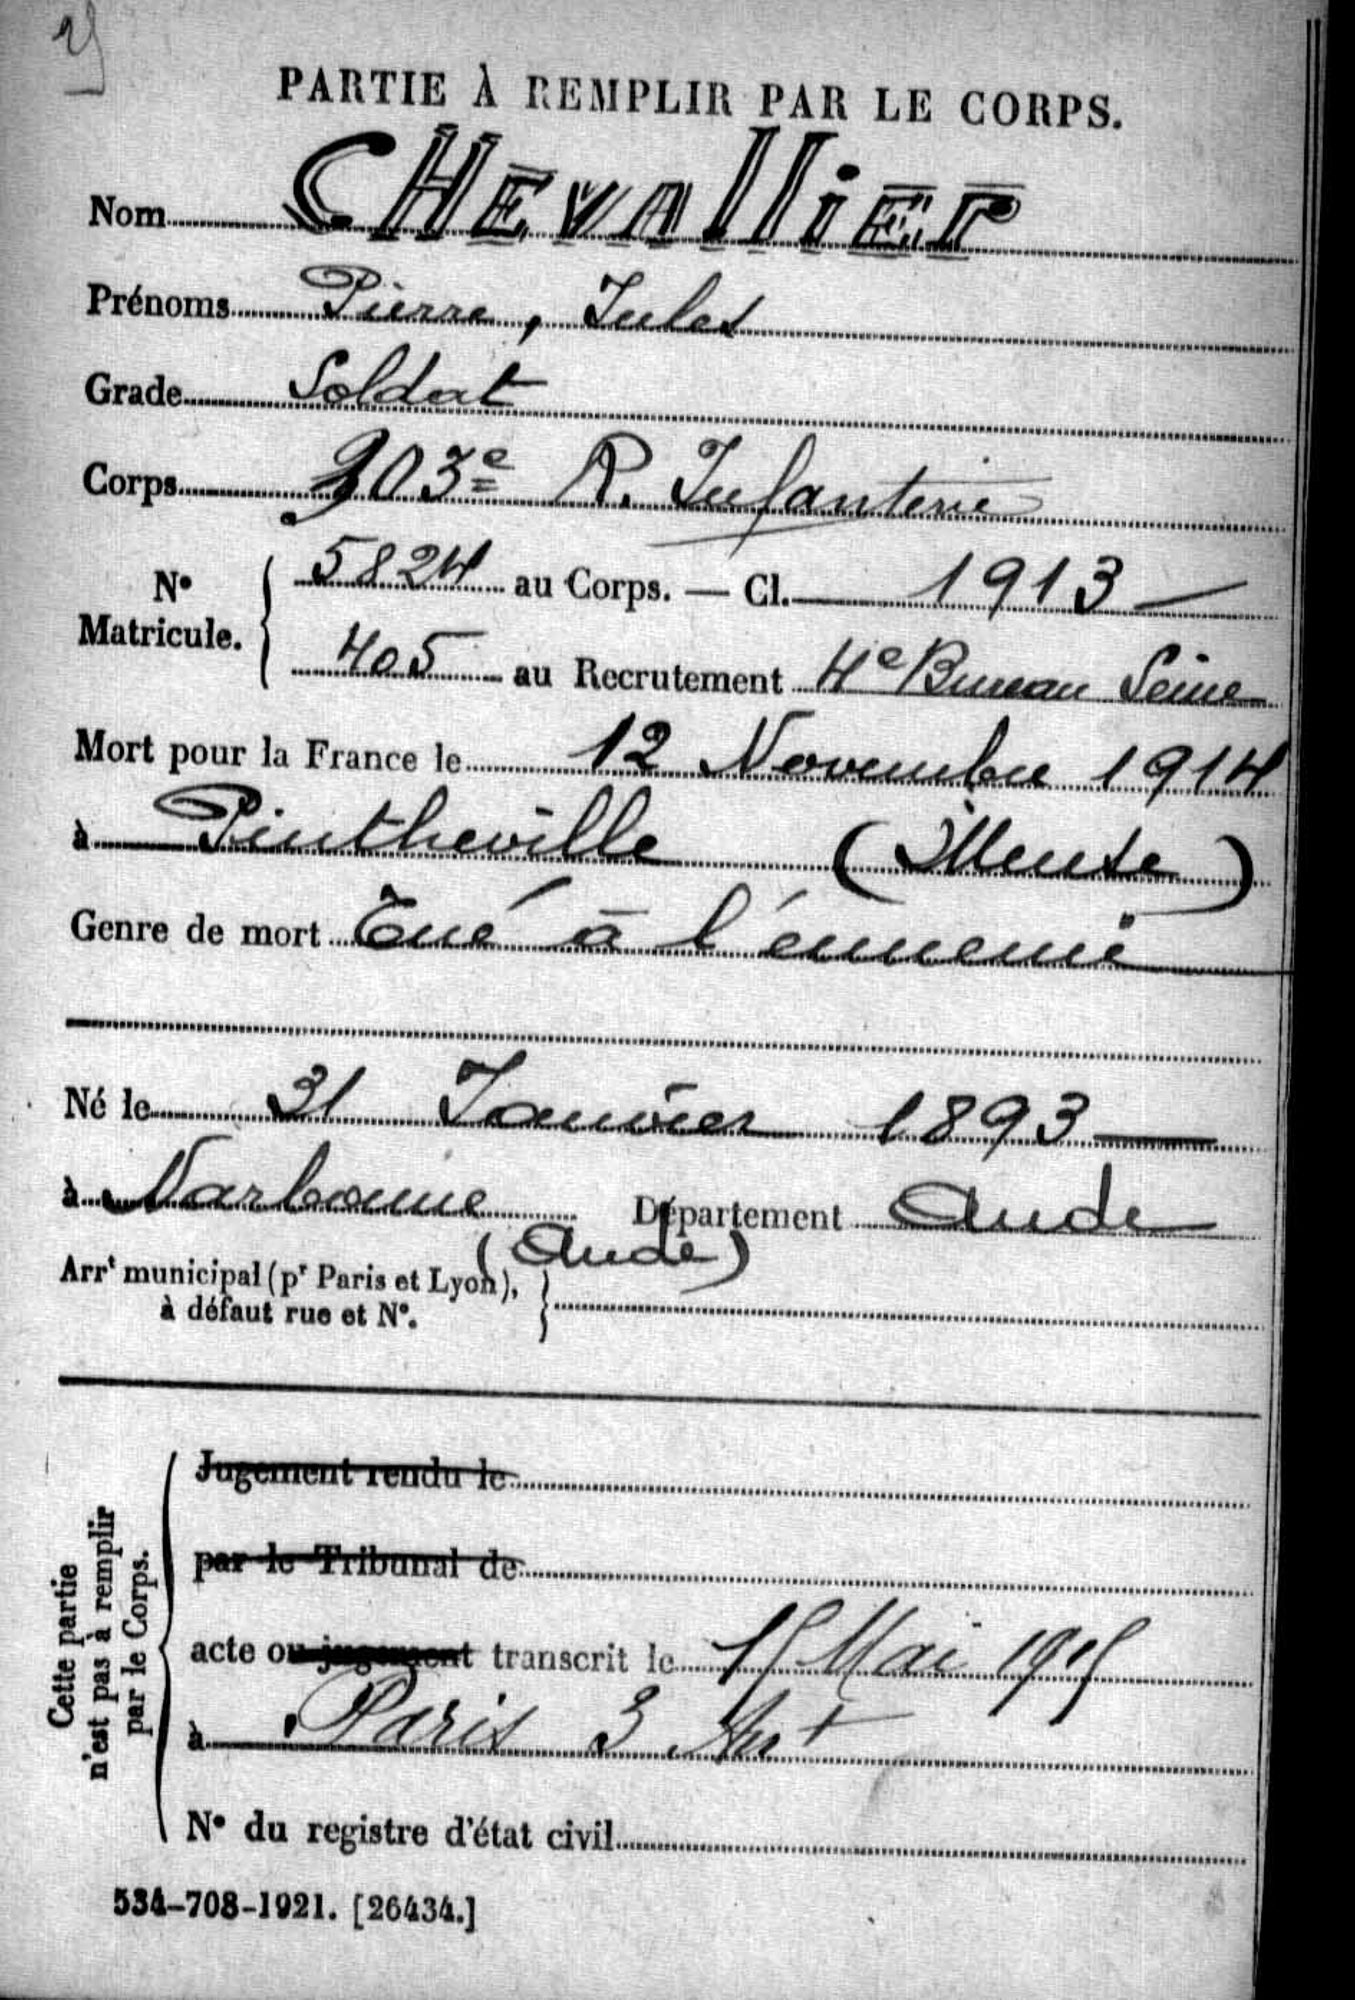 PARTIE À REMPLIR PAR LE CORPS.
Nom CHEVAllIER
Prénoms Pierre, Jules
Grade Soldat
Corps 303e R. Infanterie
N° Matricule. 5824 au Corps. — Cl. 1913 —
405 au Recrutement 4e Bureau Seine
Mort pour la France le 12 Novembre 1914
à Pintheville (Meuse)
Genre de mort Tué à l'ennemi
Né le 31 Janvier 1893
à Narbonne Département Aude
(Aude)
Arrt municipal (pr Paris et Lyon),
à défaut rue et N°.
Jugement rendu le
par le Tribunal de
acte ou jugement transcrit le 15 Mai 1915
à Paris 3 Arrt
N° du registre d'état civil
Cette partie
n'est pas à remplir
par le Corps.
534-708-1921. [26434.]